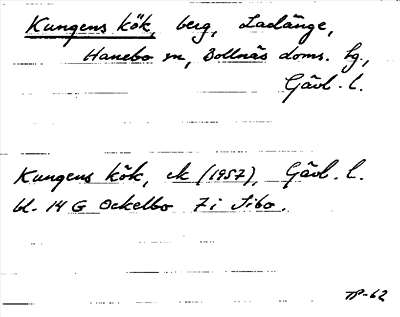 Kungens kök, berg, Ladänge,
Hanebo sn, Bollnäs doms. hg.,
Gävl. l.
Kungens kök, ek (1957), Gävl. l.
bl. 14 G Ockelbo 7i Sibo.
TP-62